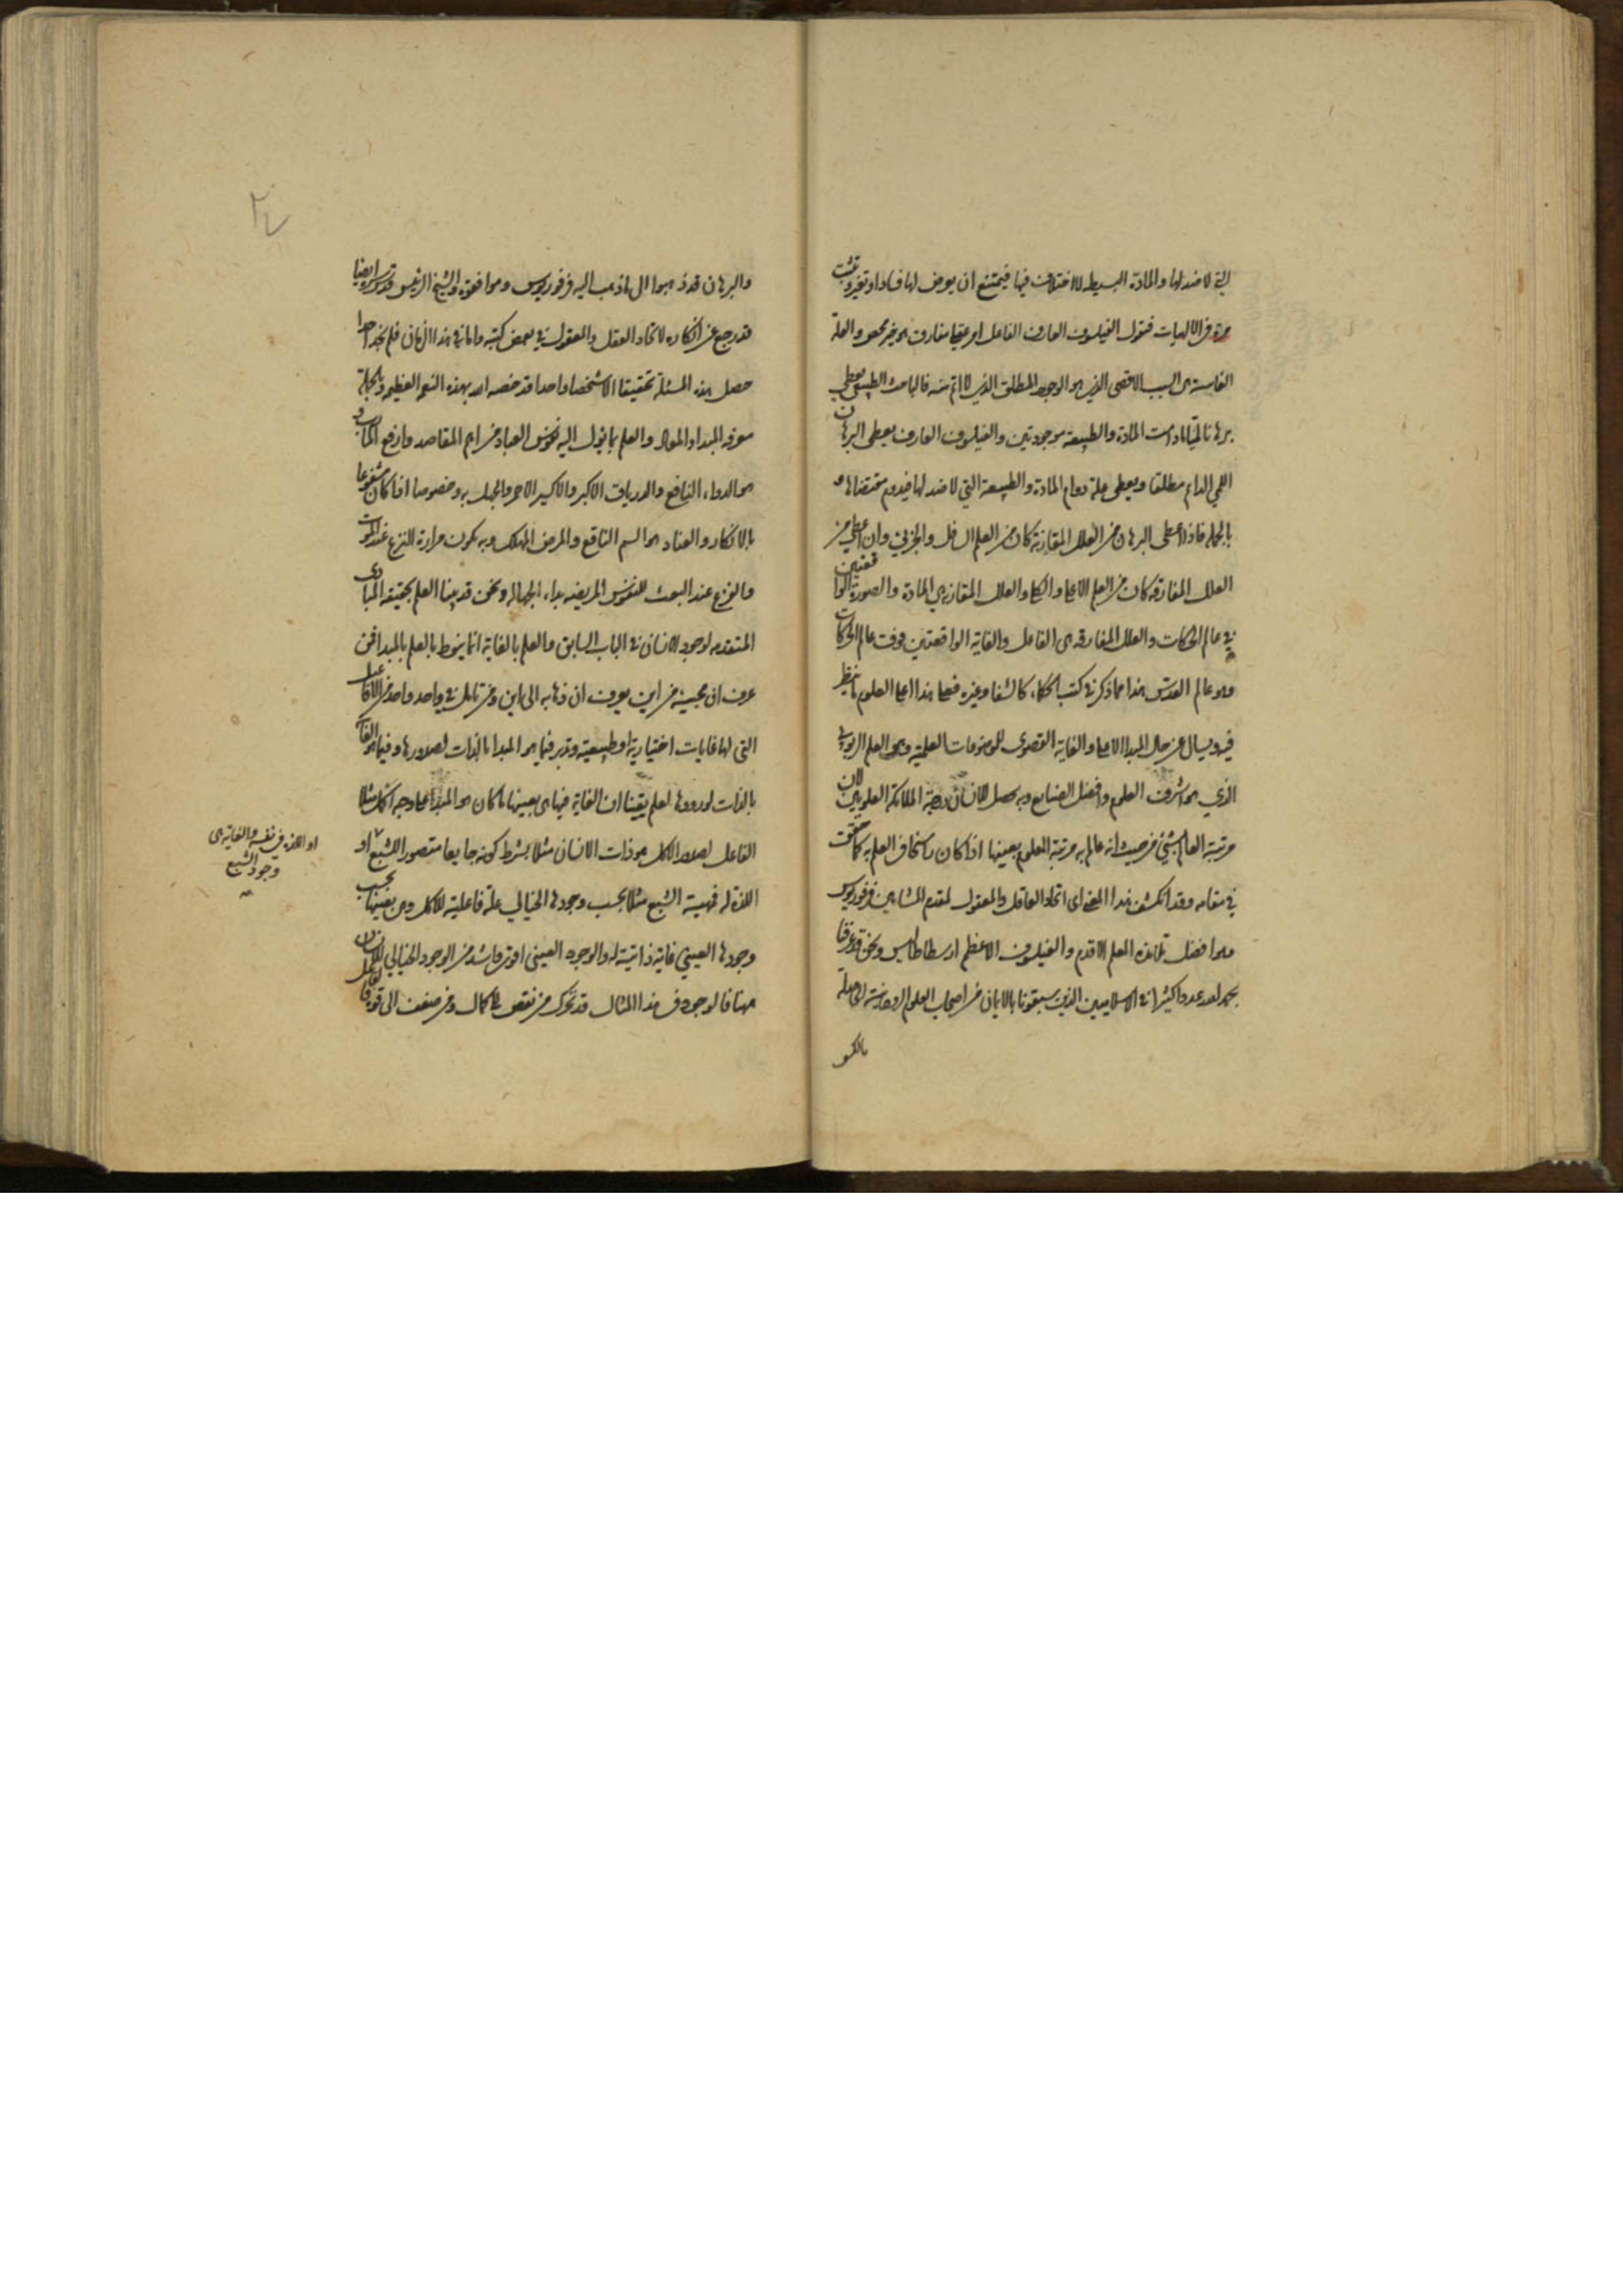 التي لا ضد لها والمادة البسيطة لا اختلاف فيها فيمتنع ان يعرض لها فساد او تغير وتثبت
مرة في الالهيات فيقول الفيلسوف العارف الفاعل امر عقلي مفارق هو خير محض والعلة
الغائية هي السبب الاقصى الذي هو الوجود المطلق الذي لا اتم منه فالباحث الطبيعي يعطي
برهانا لميا ما دامت المادة والطبيعة موجودتين والفيلسوف العارف يعطي البرهان
اللمي الدائم مطلقا ويعطي علة دوام المادة والطبيعة التي لا ضد لها فيدوم مقتضاها و
بالجملة فاذا اعطى البرهان من العلل المقارنة كان من العلم السافل والجزئي وان اعطي من
العلل المفارقة كان من العلم الاعلى والكلي والعلل المقارنة هي المادة والصورة الواقعتين
في عالم الحركات والعلل المفارقة هي الفاعل والغاية الواقعتين فوق عالم الحركات
وهو عالم القدس هذا مما ذكر في كتب الحكماء كالشفا وغيره فعلى هذا اعلى العلوم ما ينظر
فيه ويسال عن حال المبدا الاعلى والغاية القصوى للموضوعات العلمية وهو العلم الربوبي
الذي هو اشرف العلوم وافضل الصنايع وبه يحصل للانسان درجة الملائكة العلويين لان
مرتبة العالم بشيء من حيث انه عالم به مرتبة المعلوم بعينها اذا كان راسخا في العلم به كما حقق
في مقامه وقد انكشف هذا المعنى اى اتحاد العاقل والمعقول لمقدم المشايين فرفوريوس
وهو افضل تلامذة المعلم الاقدم والفيلسوف الاعظم ارسطاطاليس ونحن قد عرفنا
بحمد الله عددا كثيرا من الاسلاميين الذين سبقونا بالايمان من اصحاب العلوم الروحانية
والبرهان قد ذهبوا الى ما ذهب اليه فرفوريوس وموافقوه والشيخ الرئيس قدس سره ايضا
قد رجع عن انكاره لاتحاد العقل والمعقول في بعض كتبه واما في هذا الزمان فلم نجد احدا
حصل هذه المسئلة تحقيقا الا شخصا واحدا قد خصه الله بهذه النعم العظيمة وبالجملة
معرفة المبدا والمعاد والعلم بما يؤل اليه نفوس العباد من اهم المقاصد وارفع المآرب و
هو الدواء النافع والدرياق الاكبر والاكسير الاحمر والجهل به وخصوصا اذا كان مشفوعا
بالانكار والعناد هو السم الناقع والمرض المهلك وبه يكون مرارة النزع عند الموت
والفزع عند البعث للنفوس المريضة بداء الجهالة ونحن قد بينا العلم بحقيقة المبادى
المتقدمة لوجود الانسان في الباب السابق والعلم بالغاية انما ينوط بالعلم بالمبدا فمن
عرف ان مجيئه من اين يعرف ان ذهابه الى اين ومن تامل في واحد واحد من الافاعيل
التي لها غايات اختيارية او طبيعية وتدبر فيما هو المبدا بالذات لصدورها وفيما هو الغاية
بالذات لورودها لعلم يقينا ان الغاية فيها هي بعينها ما كان هو المبدا على وجه اكمل مثلا
الفاعل لصدور الاكل هو ذات الانسان مثلا بشرط كونه جايعا متصورا للشبع او
اللذة له فمهية الشبع مثلا بحسب وجودها الخيالي علة فاعلية للاكل وهي بعينها بحسب
وجودها العيني غاية ذاتية له والوجود العيني اقوى واشد من الوجود الخيالي للانسان
فالوجود في هذا المثال قد تحرك من نقص الى كمال ومن ضعف الى قوة
او اللذة في نفسه والغاية هي
وجود الشبع